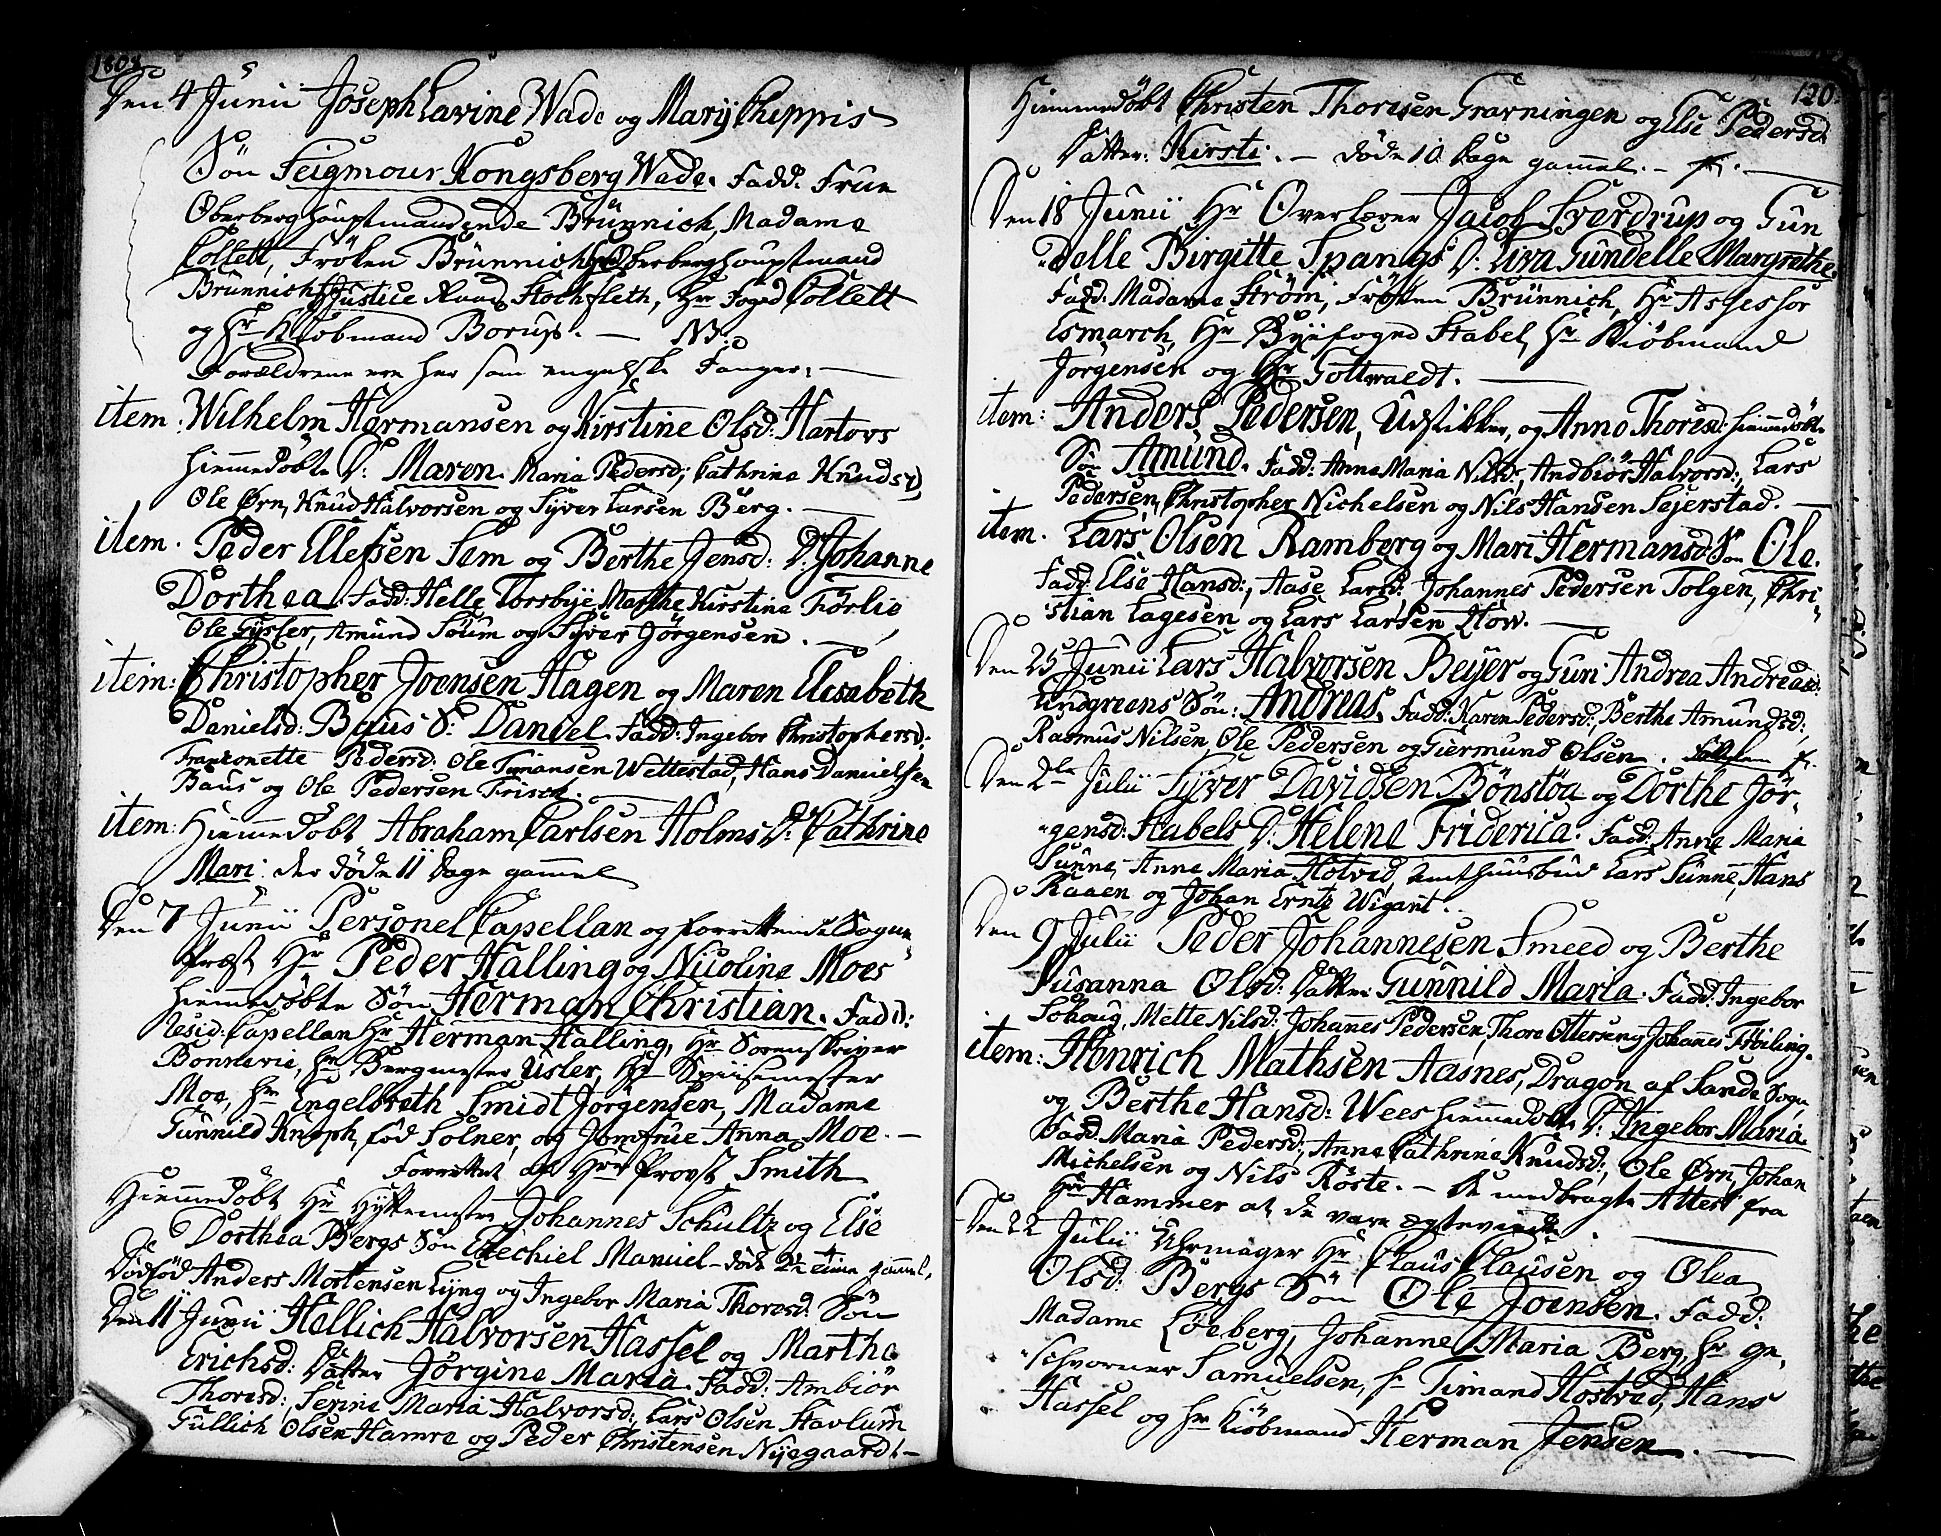 1809
Den 4 Junii Joseph Lavine Wade og Marÿ Chippis
Søn Seigmour Kongsberg Wade. Fadd: Frue
Oberberghauptmandinde Brünnich, Madame
Collett, Frøken Brünnich, Oberberghauptmand
Brünnich, Justice Raad Stochfleth, Hr Foged Collett
og Hr Kiøbmand Borup. — NB.
Forældrene ere her som engelske Fanger. —
item: Wilhelm Hermansen og Kirstine Olsd: Hartovs
hiemmedøbte D: Maren. Maria Pedersd; Cathrine Knudsd,
Ole Ørn, Knud Halvorsen og Syver Larsen Berg. —
item. Peder Ellefsen Sem og Berthe Jensd: D: Johanne
Dorthea. Fadd: Helle Torsbye, Marthe Kirstine Førlie
Ole Gisler, Amund Solum og Syver Jørgensen. —
item: Christopher Joensen Hagen og Maren Elisabeth
Danielsd: Baus S: Daniel. Fadd: Ingebor Christophersd:
Frantonette Pedersd: Ole Timansen Wettestad, Hans Danielsen
Baus og Ole Pedersen Frisch. —
item: Hiemmedøbt Abraham Carlsen Holms D: Cathrine
Mari: der døde 11 Dage gammel
Den 7 Junii Personel Capellan og forrettende Sogne
Præst Hr Peder Halling og Nicoline Moes
hiemmedøbte Søn Herman Christian. Fadd:
Resid: Capellan Hr Herman Halling, Hr Sorenskriver
Bonnevie, Hr Bergmester Usler, Hr Spisemester
Moe, Hr Engelbreth Smidt Jørgensen, Madame
Gunnild Knoph, fød Solner, og Jomfrue Anna Moe. —
Forrettet af Hr Provst Smith
Hiemmedøbt Hr Hyttemester Johannes Schultz og Else
Dorthea Bergs Søn Ezechiel Manuel - døde 2½ time gammel.
Dødfød Anders Mortensen Lyng og Ingebor Maria Thoresd: Søn
Den 11 Junii Hellich Halvorsen Hassel og Marthe
Erichsd: Datter Jørgine Maria. Fadd: Ambiør
Thoresd: Serine Maria Halvorsd:, Lars Olsen Stavlum
Gullich Olsen Hamre og Peder Christensen Nyegaard. —
120
Hiemmedøbt Christen Thoresen Grarningen og Else Pedersd:
Datter: Kirsti. — døde 10 Dage gammel. —
Den 18 Junii Hr Overlærer Jacob Sverdrup og Gun
delle Birgitte Spangs D: Liva Gundelle Margrethe.
Fadd: Madame Strøm, Frøken Brünnich, Hr Assessor
Esmarch, Hr Byefoged Stabel, Hr Kiøbmand
Jörgensen og Hr Gottwaldt. —
item: Anders Pedersen, Udstikker, og Anne Thoresd: hiemmedøbte
Søn Amund. Fadd: Anne Maria Nilsd:, Andbiør Halvorsd:, Lars
Pedersen, Christopher Nichelsen og Nils Hansen Sejerstad. —
item. Lars Olsen Ramberg og Mari Hermansd Søn Ole.
Fadd: Else Hansd:, Aase Larsd: Johannes Pedersen Tolgen, Chri-
stian Lagesen og Lars Larsen How. —
Den 25 Junii Lars Halvorsen Beyer og Guri Andrea Andreasd:
Lindgreens Søn: Andreas. Fadd: Karen Pedersd:, Berthe Amundsd:,
Rasmus Nilsen, Ole Pedersen og Giermund Olsen.
Den 2de Julii Syver Davidsen Bönstöa og Dorthe Jör-
gensd: Stabels D: Helene Friderica. Fadd: Anne Maria
Sunne, Anne Maria Hotvid, Lars Sunne, Hans
Raaen og Johan Ernts Wigant.
Den 9 Julii Peder Johannesen Smeed og Berthe
Susanna Olsd: Datter Gunnild Maria. Fadd: Ingebor
Sohoug, Mette Nilsd:, Johannes Pedersen, Thore Ottersen og Johannes Frøiling.
item: Henrich Mathsen Aasnes, Dragon af Sande Sogn
og Berthe Hansd: Wees hiemmedøbte D: Ingebor Maria.
Fadd: Maria Pedersd:, Anne Cathrine Knudsd:, Ole Ørn, Johan
Michelsen og Nils Röste. — De medbragte Attest fra
Hr Hammer at de vare ægteviede. —
Den 22 Julii Uhrmager Hr Claus Clausen og Olea
Olsd: Bergs Søn Ole Joensen. Fadd:
Madame Løeberg, Johanne Maria Berg, Hr Ge-
schvorner Samuelsen, Hr Timand Hostvad, Hans
Hassel og Hr Kiøbmand Herman Jensen. —